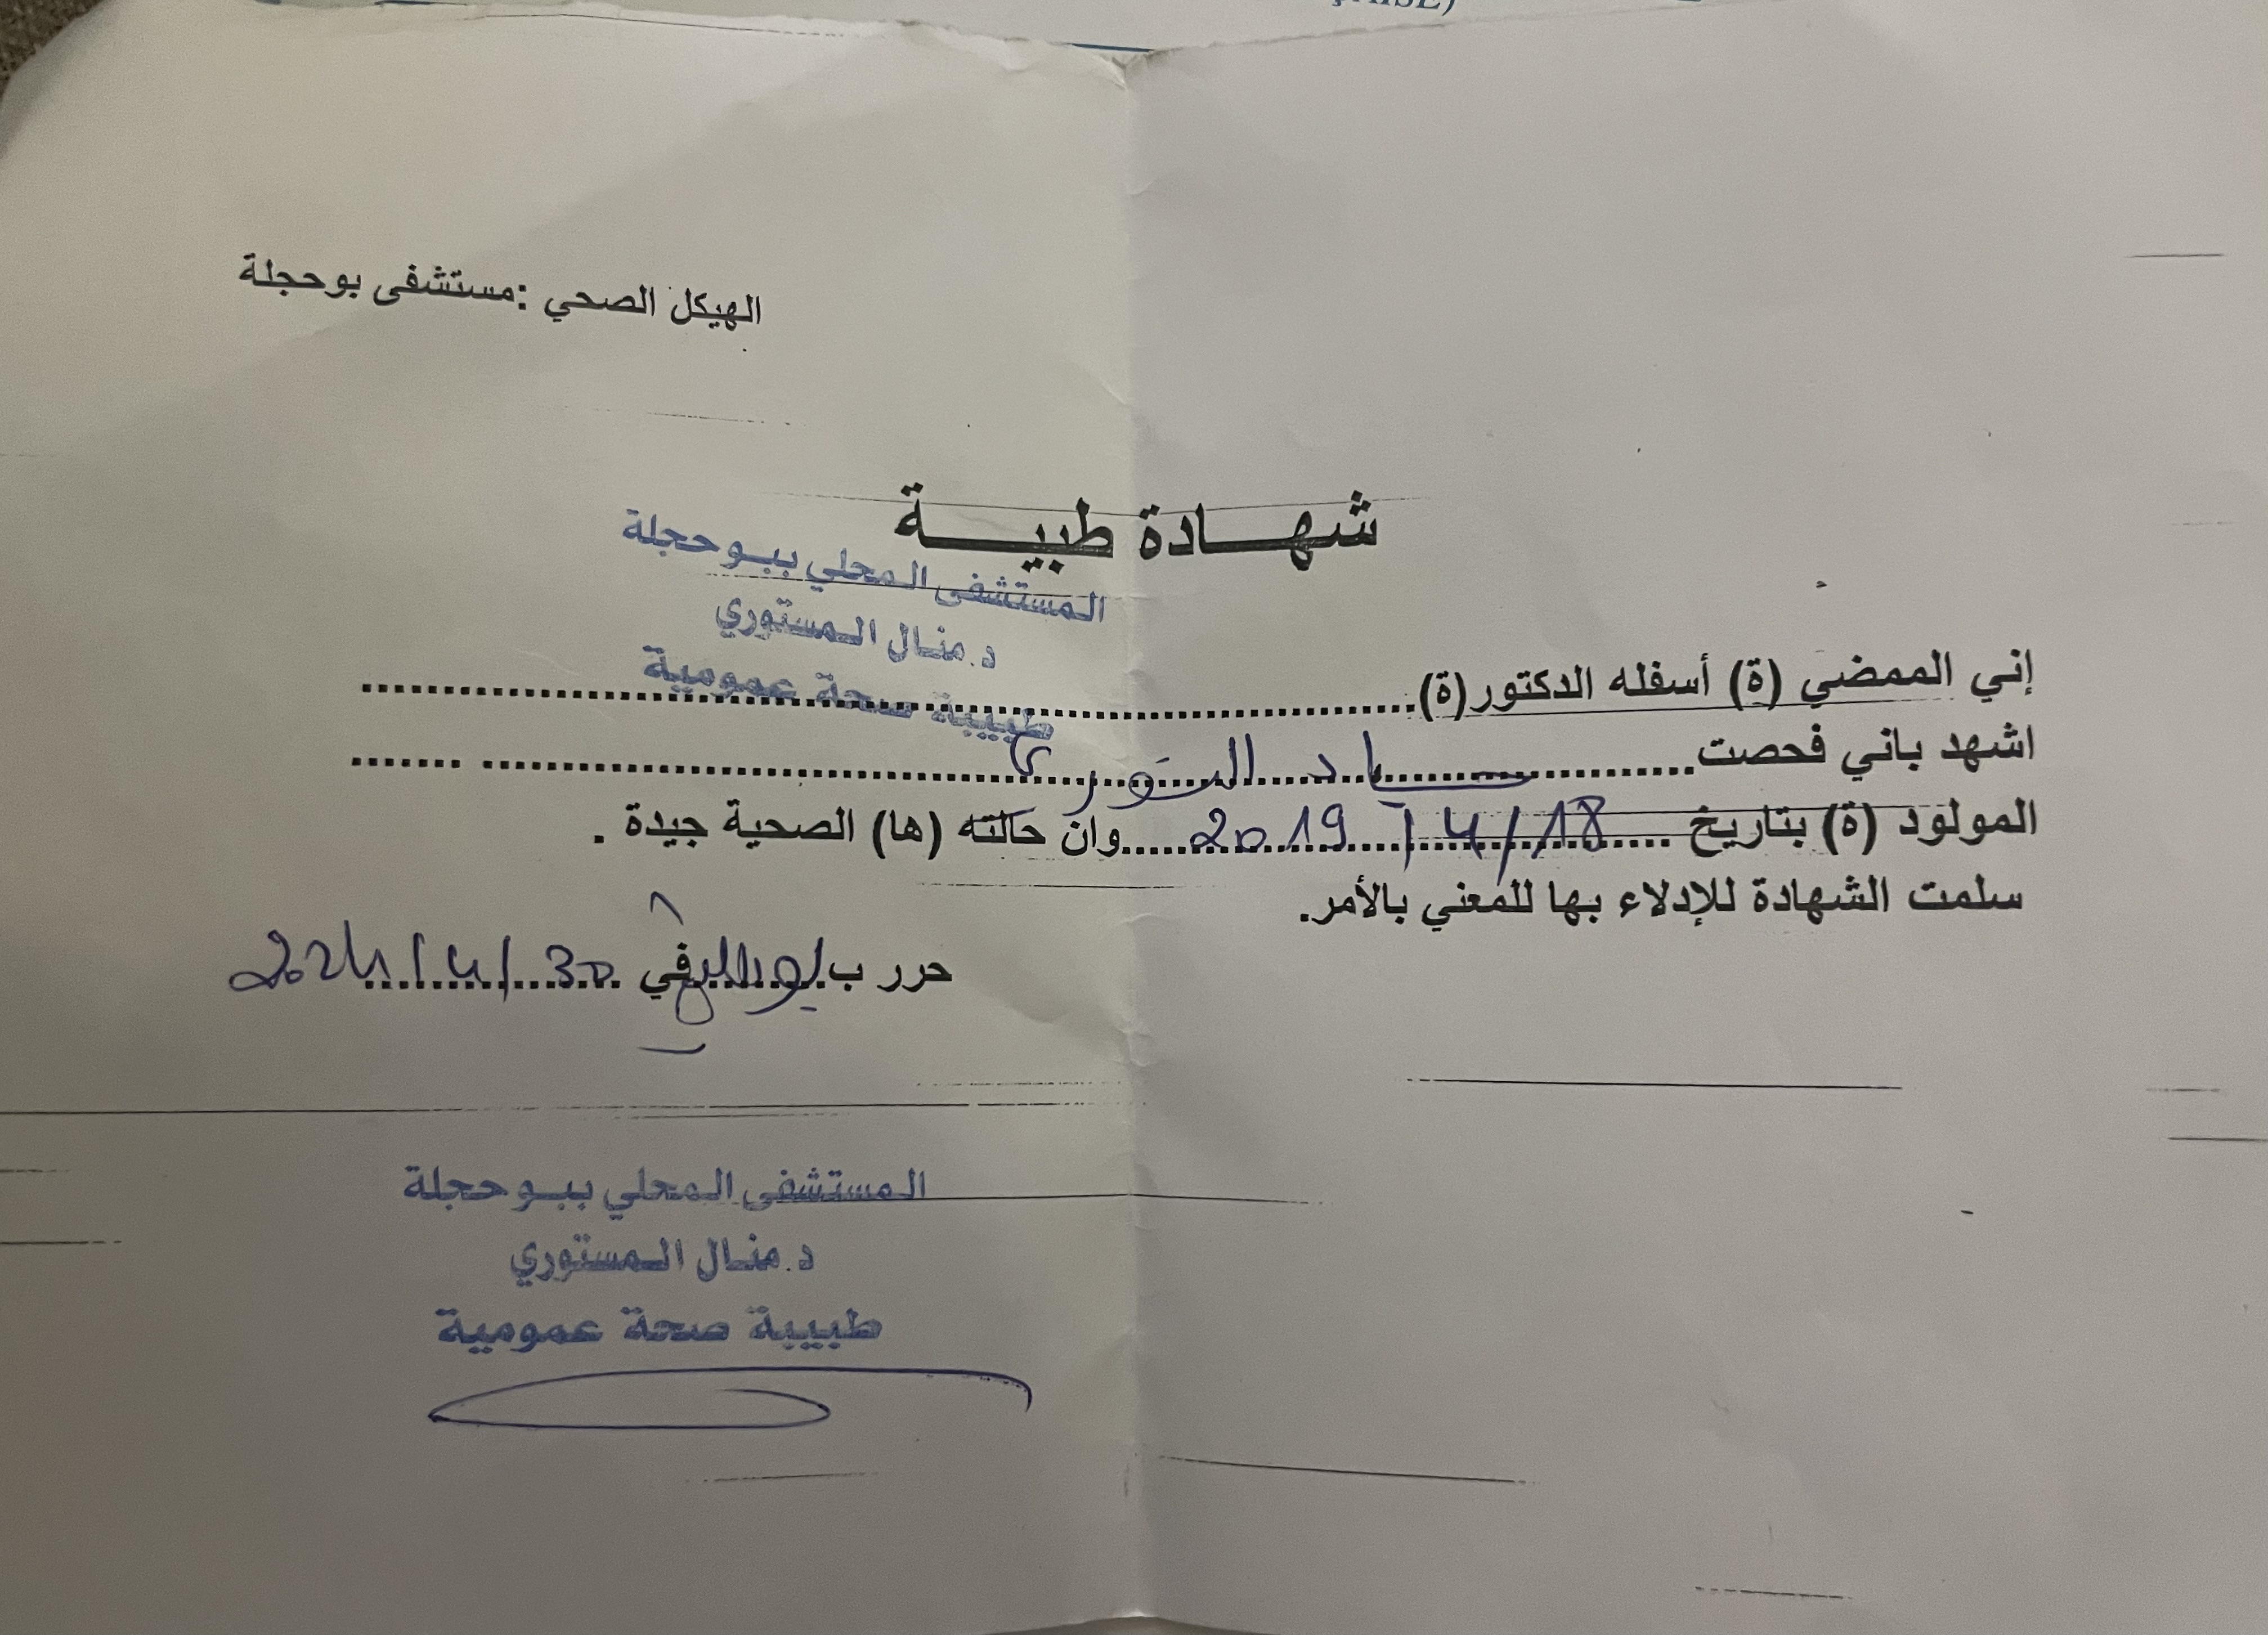 الهيكل الصحي :مستشفى بوحجلة
شهادة طبية
المستشفى المحلي ببوحجلة
د.منال المستوري
طبيبة صحة عمومية
إني الممضي (ة) أسفله الدكتور(ة)
اشهد باني فحصت
المولود (ة) بتاريخ 18/4/2019 وان حالته (ها) الصحية جيدة .
سلمت الشهادة للإدلاء بها للمعني بالأمر.
حرر ب في 30/4/2024
المستشفى المحلي ببوحجلة
د.منال المستوري
طبيبة صحة عمومية